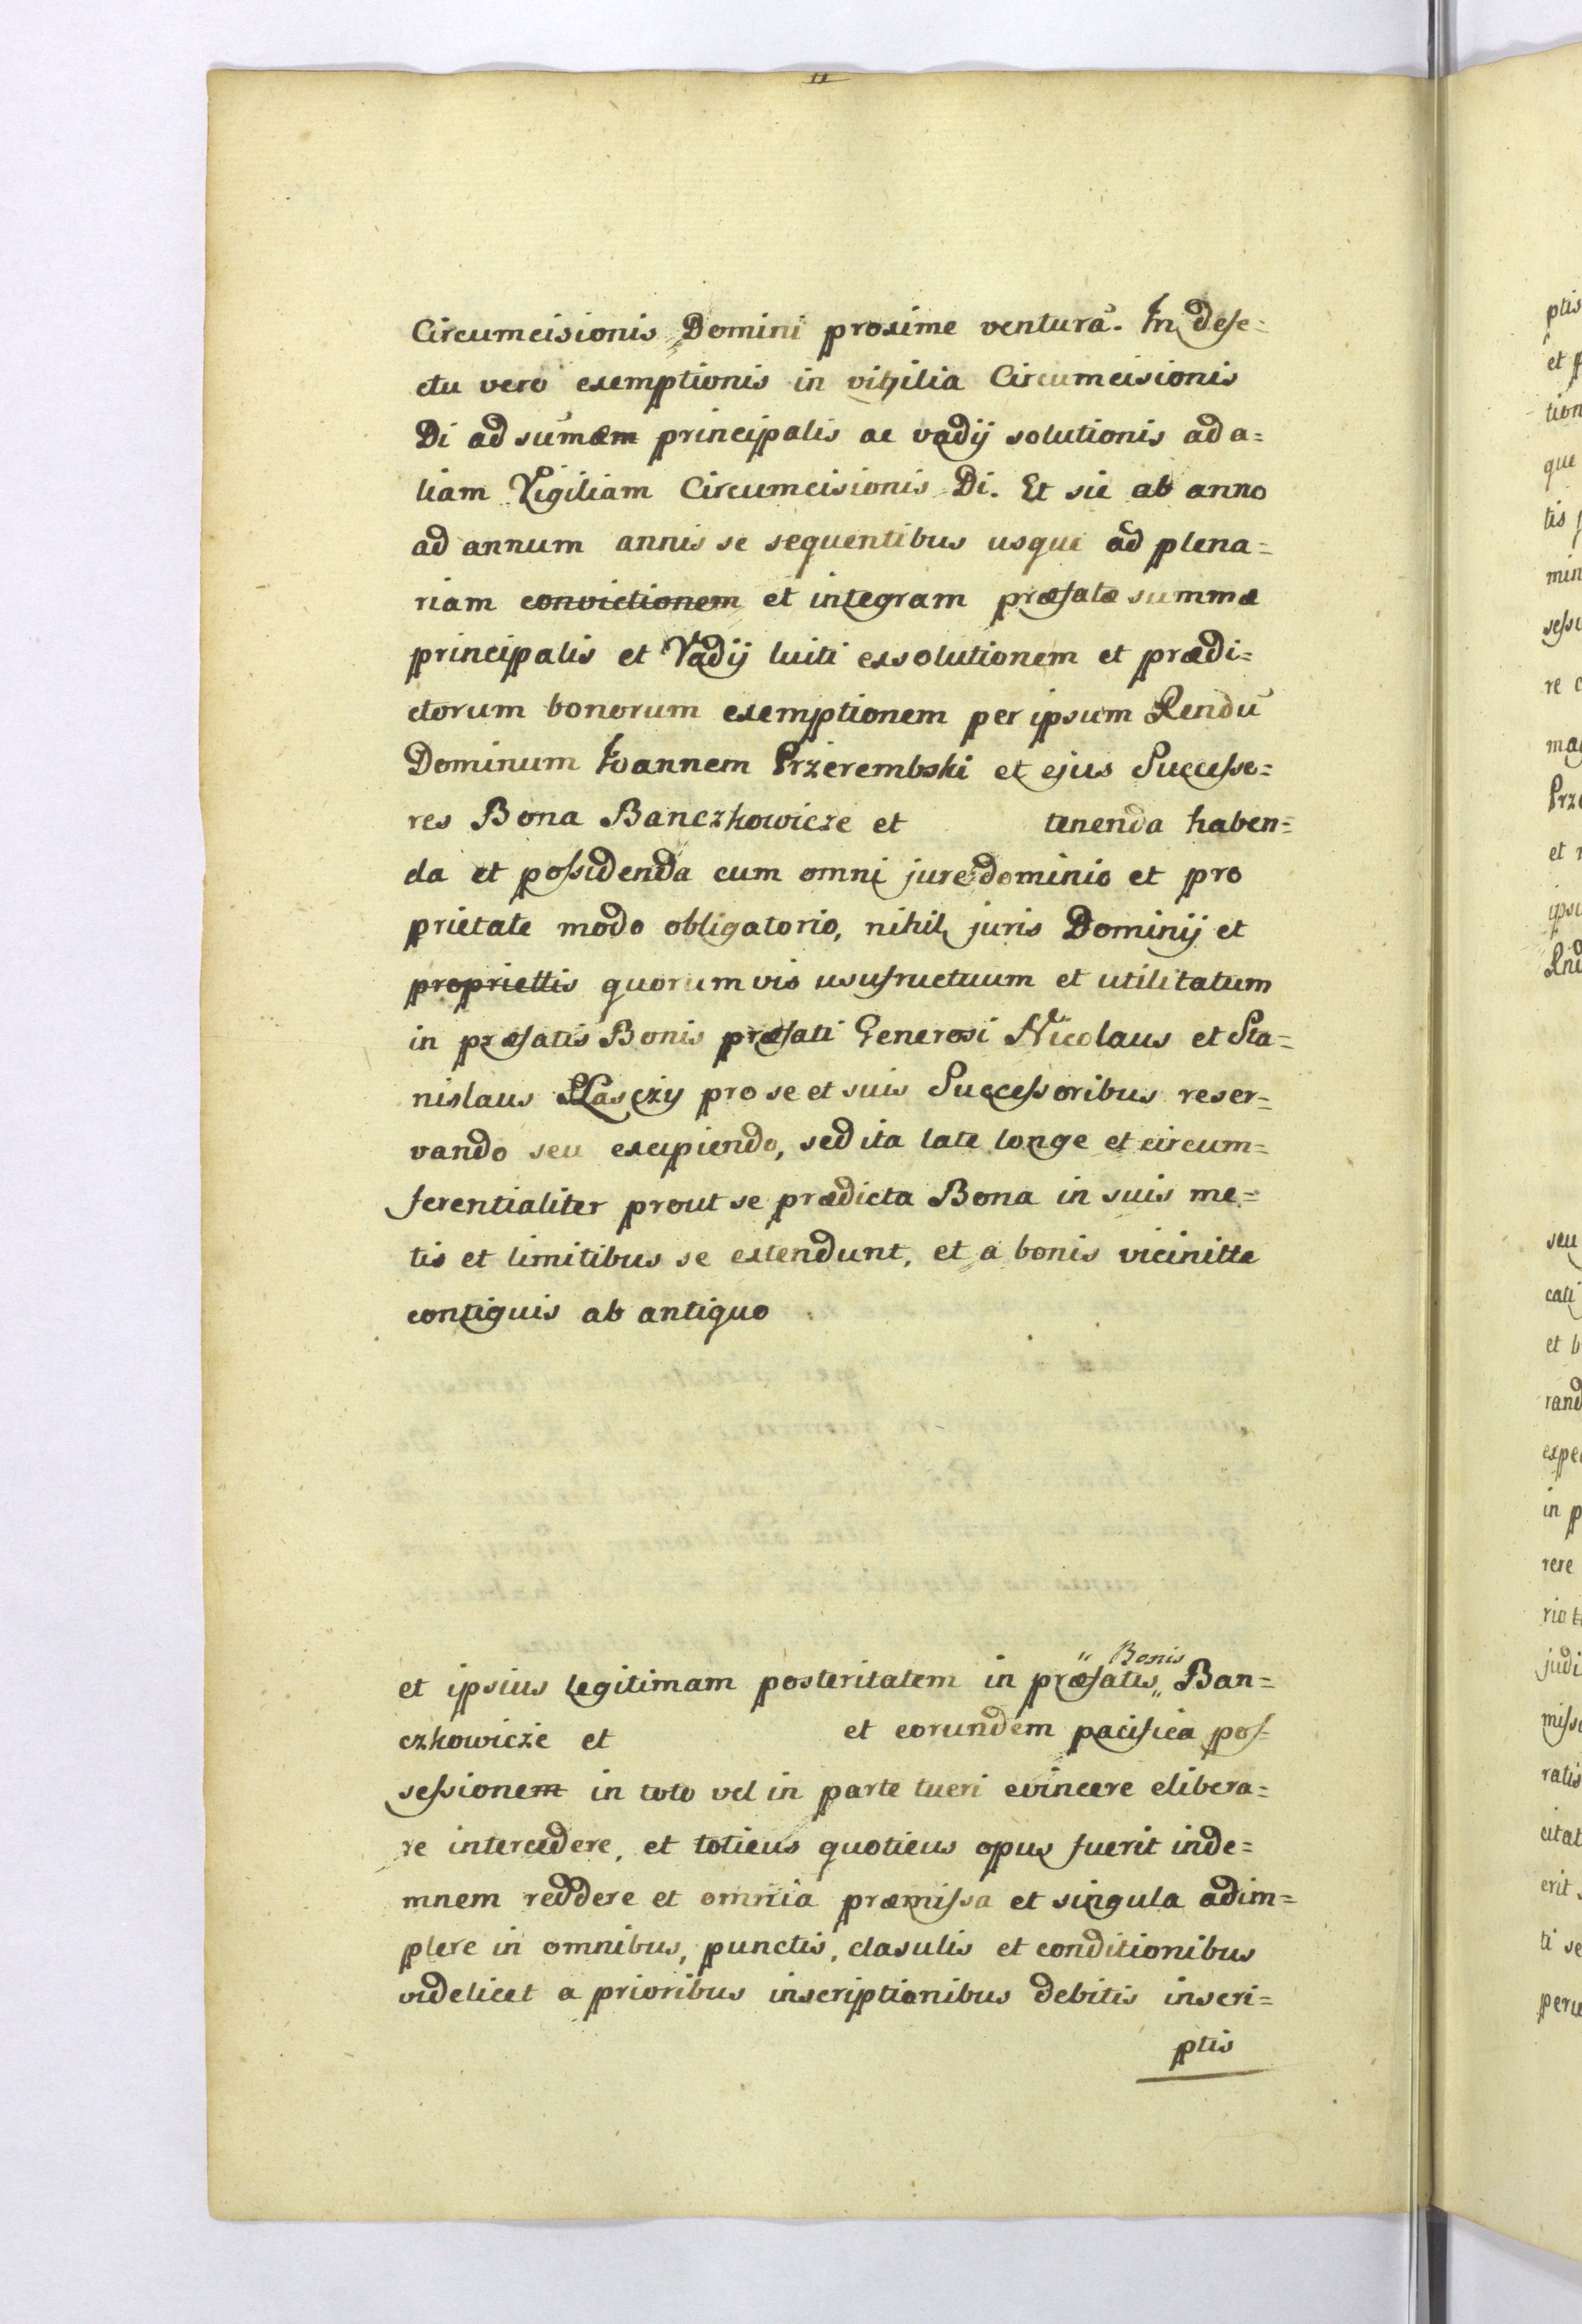 Circumcisionis Domini proxime venturā. In defe=
ctu vero exemptionis in vigilia Circumcisionis
Di ad sum̄am principalis ac vadij solutionis ad a=
liam Vigiliam Circumcisionis Di. Et sic ab anno
ad annum annis se sequentibus usque ad plena=
riam convictionem et integram præfatæ summæ
principalis et Vadij luiti exsolutionem et prædi=
ctorum bonorum exemptionem per ipsum Rendū
Dominum Ioannem Przerembski et ejus Successo=
res Bona Banczkowicze et tenenda haben=
da et possidenda cum omni jure dominio et pro
prietate modo obligatorio, nihil juris Dominij et
propriettis quorumvis usufructuum et utilitatum
in præfatis Bonis præfati Generosi Nicolaus et Sta=
nislaus Lasczy pro se et suis Successoribus reser=
vando seu excipiendo, sed ita late longe et circum=
ferentialiter prout se prædicta Bona in suis me=
tis et limitibus se extendunt, et a bonis vicinitte
contiguis ab antiquo
et ipsius legitimam posteritatem in præfatis „ Bonis „ Ban=
czkowicze et et eorundem pacifica pos=
sessionem in toto vel in parte tueri evincere elibera=
re intercedere, et totieus quotieus opus fuerit inde=
mnem reddere et omnia præmissa et singula adim=
plere in omnibus, punctis, clasulis et conditionibus
videlicet a prioribus inscriptionibus debitis inscri=
ptis